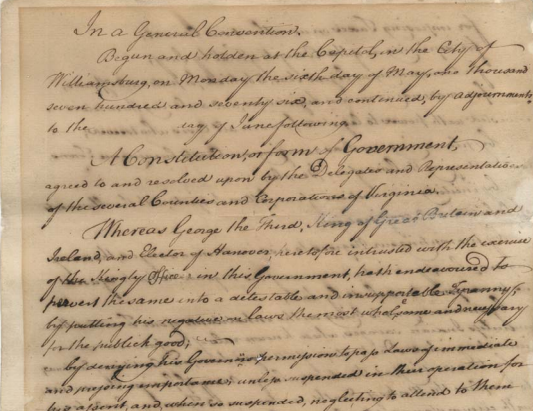 In a General Convention.
Begun and holden at the Capitol, in the City of
Williamsburg, on Monday the sixth day of May, one thousand
seven hundred and seventy six, and continued, by adjournments
to the day of June following.
A Constitution, or form of Government,
agreed to and resolved upon by the Delegates and Representatives
of the several Counties and Corporations of Virginia.
Whereas George the Third, King of Great Britain and
Ireland, and Elector of Hanover, heretofore intrusted with the exercise
of the Kingly Office in this Government, hath endeavoured to
pervert the same into a detestable and insupportable Tyranny;
by putting his negative on laws the most wholesome and necessary
for the publick good;
by denying his Governors permission to pass Laws of immediate
and pressing importance, unless suspended in their operation for
his assent, and, when so suspended, neglecting to attend to them